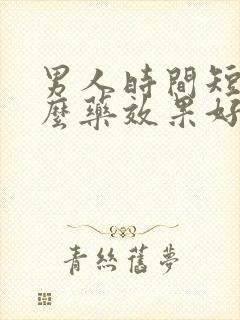 男人時間短
麼藥效果好
青絲舊夢